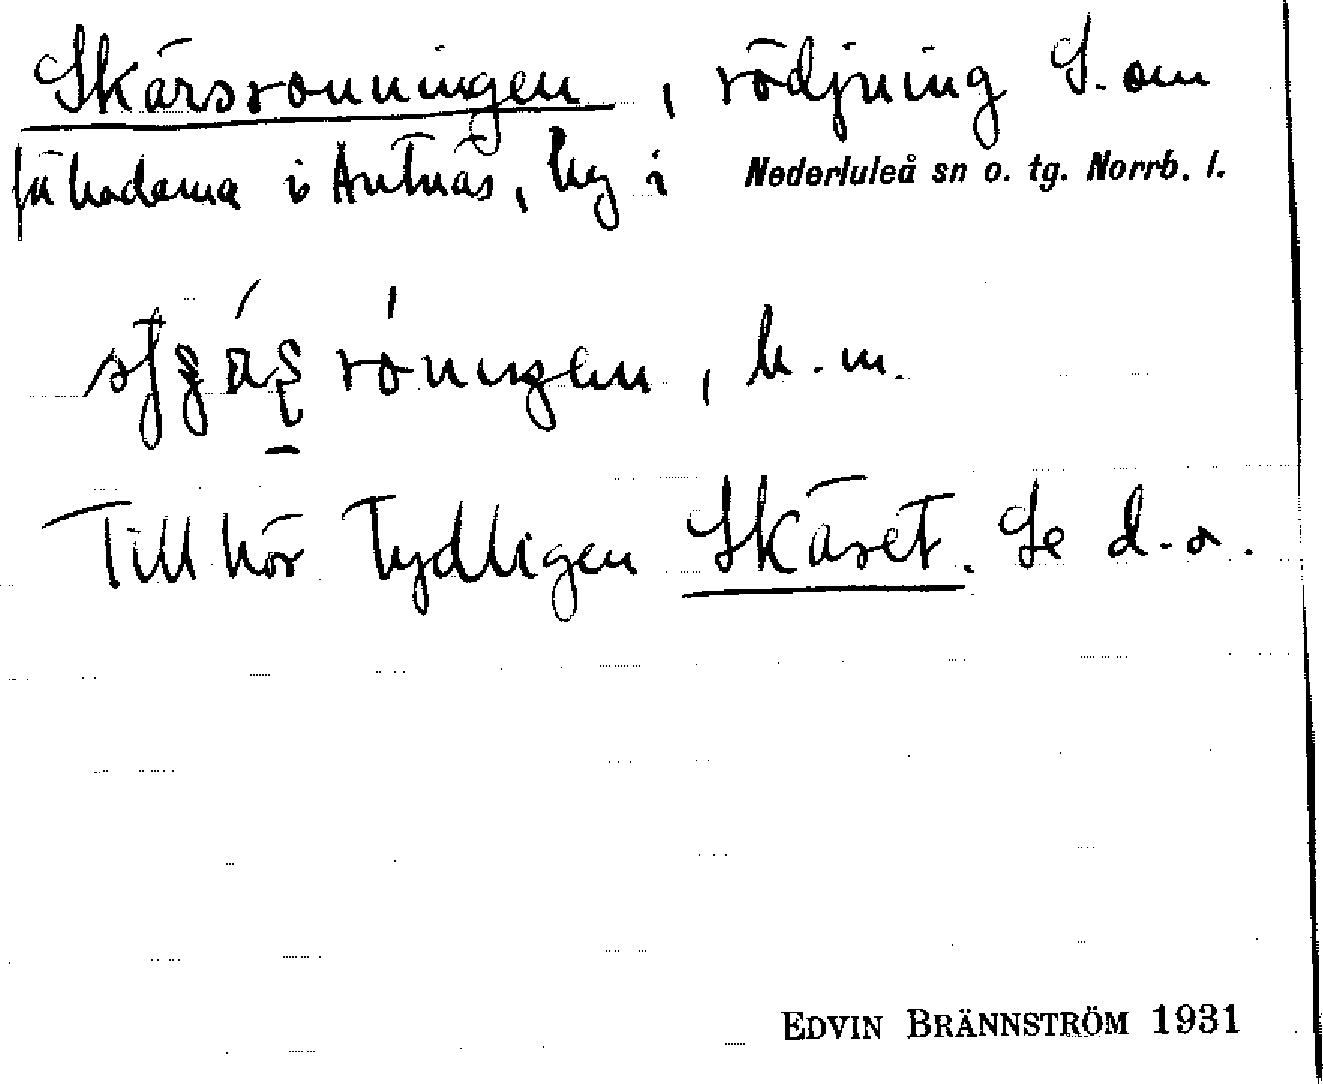 Skärsronningen, rödjning S. om
fäbodarna i Antnäs, by i Nederluleå sn o. tg. Norrb. l.
b. m.
Tillhör tydligen Skäret. Se d. o.
EDVIN BRÄNNSTRÖM 1931